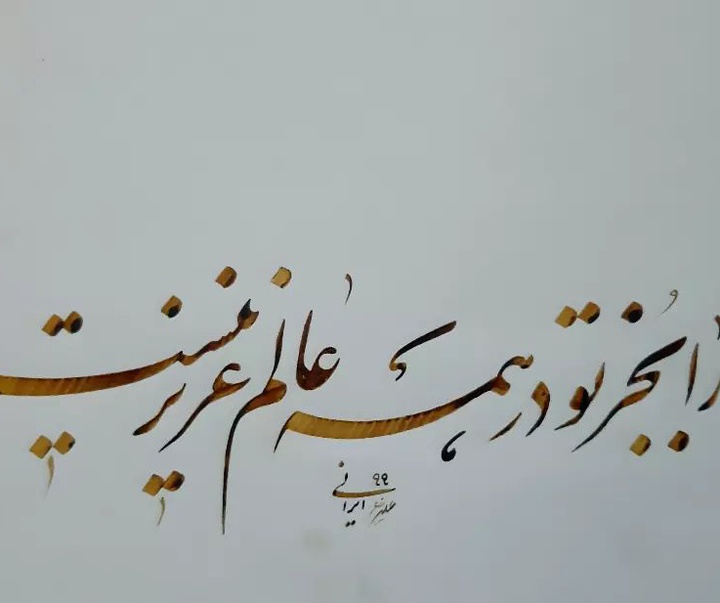 را بجز تو در همه عالم عزیز نیست
علیرضا ایرانی ۹۹